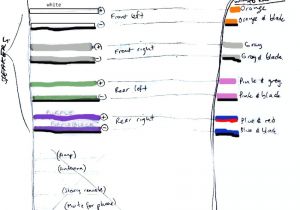 white
Front left
Front right
Rear left
PURPLE
Rear right
SPEAKERS
Orange
Orange & black
Gray
Gray & black
Pink & grey
Pink & black
Blue & red
Blue & black
(Amp)
(Antenna)
(Mute for phone)